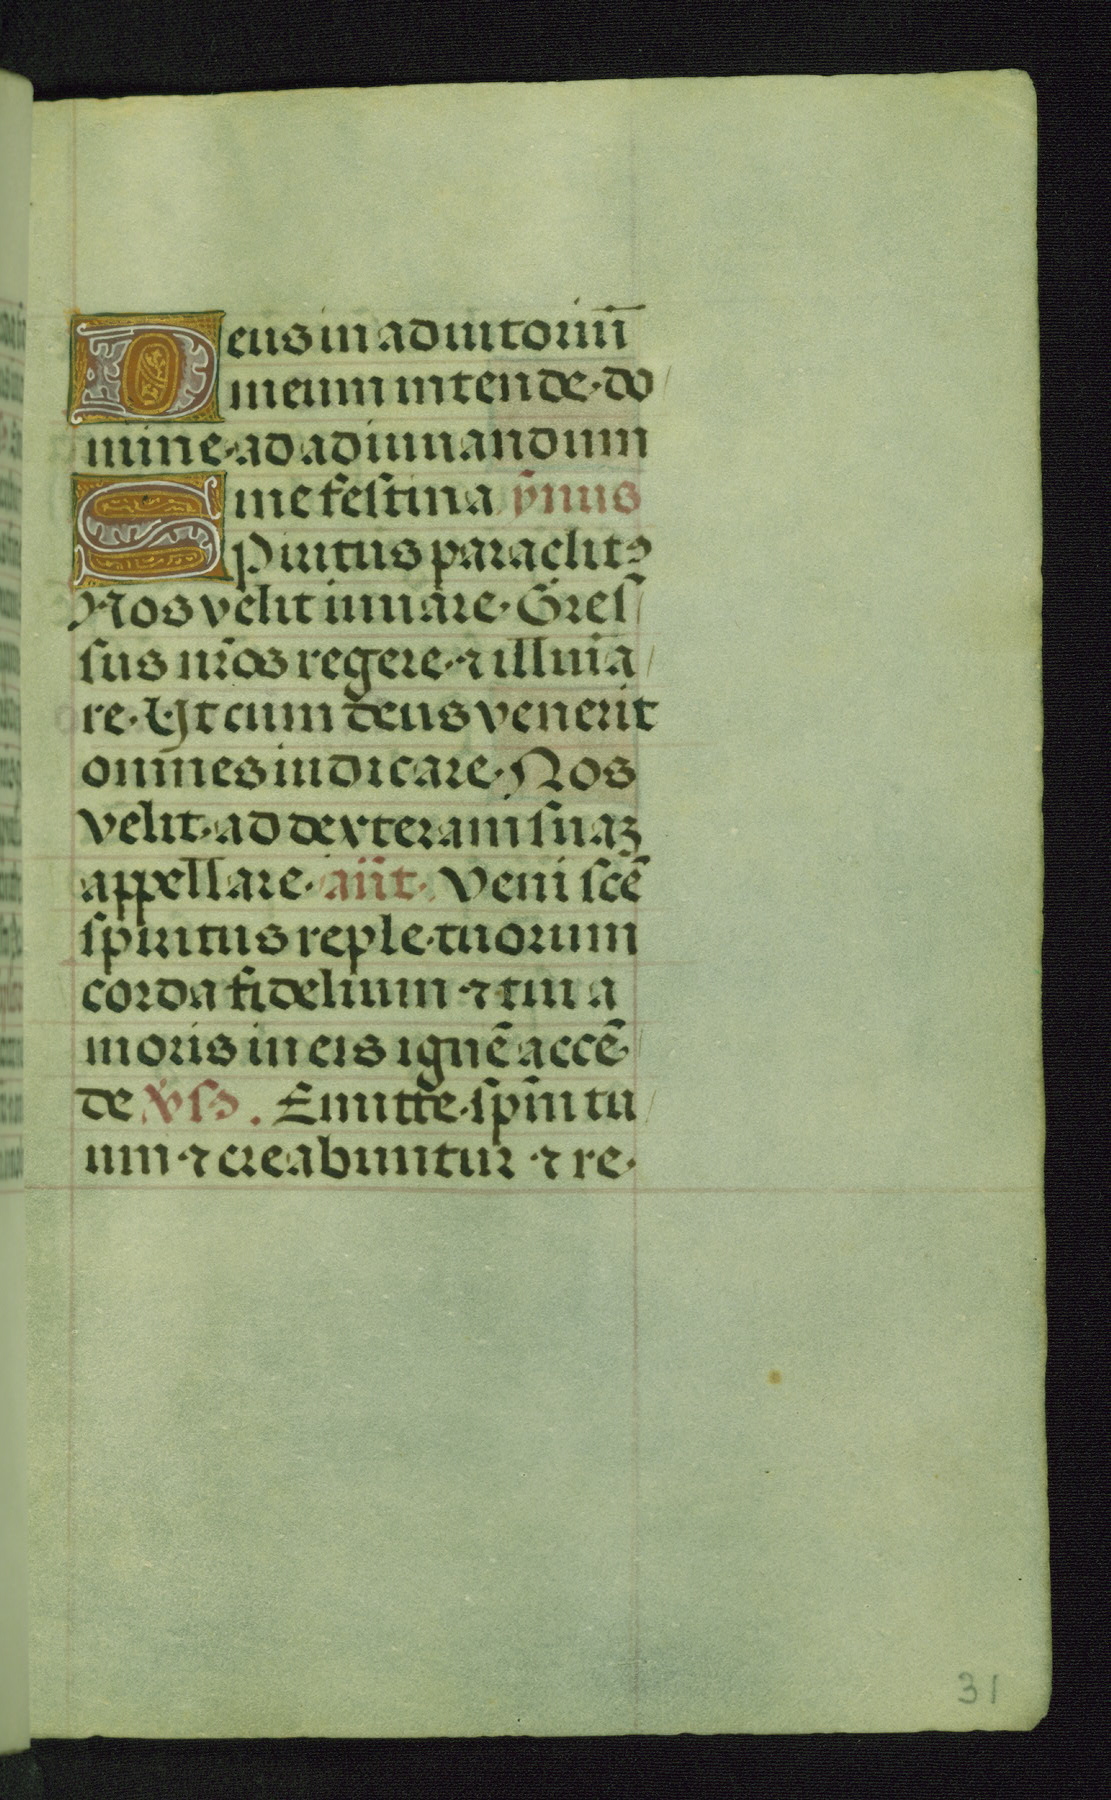 Deus in adiutoriū
meum intende·do
mine·ad adiuuandum
me festina ẏmus
Spiritus paraclitꝰ
Nos velit iuuare·Gres
sus nr̄os regere·⁊ illuīa
re·Vt cum deus venerit
omnes iudicare·Nos
velit·ad dexteram suaꝫ
appellare·añt· Veni scē
spiritus reple·tuorum
corda fidelium·⁊ tui a
moris in eis ignē accē
de v̇sꝰ. Emitte·spm̄ tu
um·⁊ creabuntur ·⁊ re·
31